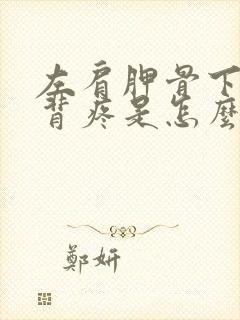 左肩胛骨下
背疼是怎麼
鄭妍